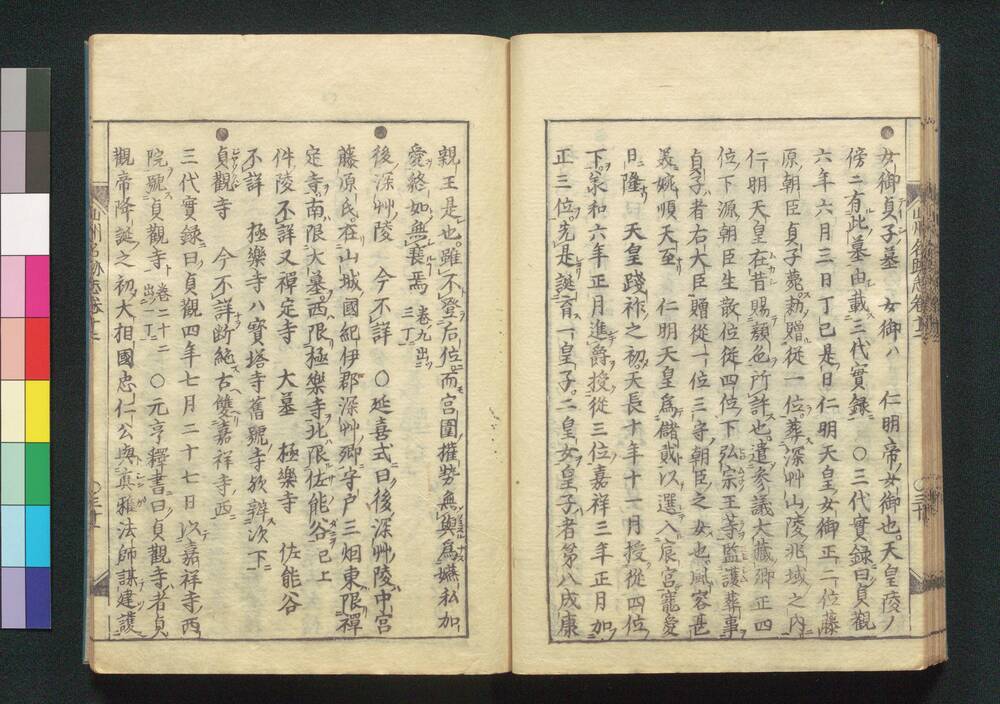 女御貞子墓 女御ハ 仁明帝ノ女御也天皇陵ノ
傍ニ有此墓由載三代實録 ○三代實録曰貞觀
六年六月三日丁巳是日仁明天皇女御正二位藤
原朝臣貞子薨勅贈從一位葬深艸山陵兆域之内
仁明天皇在昔賜顏色所許也遣參議大藏卿正四
位下源朝臣生散位從四位下弘宗王等監護葬事
貞子者右大臣贈從一位三守朝臣之女也風容甚
美婉順天至 仁明天皇爲儲貳以選入宸宮寵愛
日隆 天皇踐祚之初天長十年十一月授從四位
下承和六年正月進爵授從三位嘉祥三年正月加
正三位先是誕育一皇子二皇女皇子者第八成康
親王是也雖不登后位而宮闈權勢無與爲嬿私加
愛終如無襄焉 卷九出三丁
後深艸陵 今不詳 ○延喜式曰後深艸陵中宮
藤原氏在山城國紀伊郡深艸鄉守戸三烟東限禪
定寺南限大墓西限極樂寺北限佐能谷已上
件陵不詳又禪定寺 大墓 極樂寺 佐能谷
不詳 極樂寺ハ寶塔寺舊號寺故辨次下
貞觀寺 今不詳斷絶古雙嘉祥寺西
三代實録曰貞觀四年七月二十七日以嘉祥寺西
院號貞觀寺 卷二十二出一丁 ○元亨釋書曰貞觀寺者貞
觀帝降誕之初大相國忠仁公與眞雅法師謀建護
山州名跡志卷十二